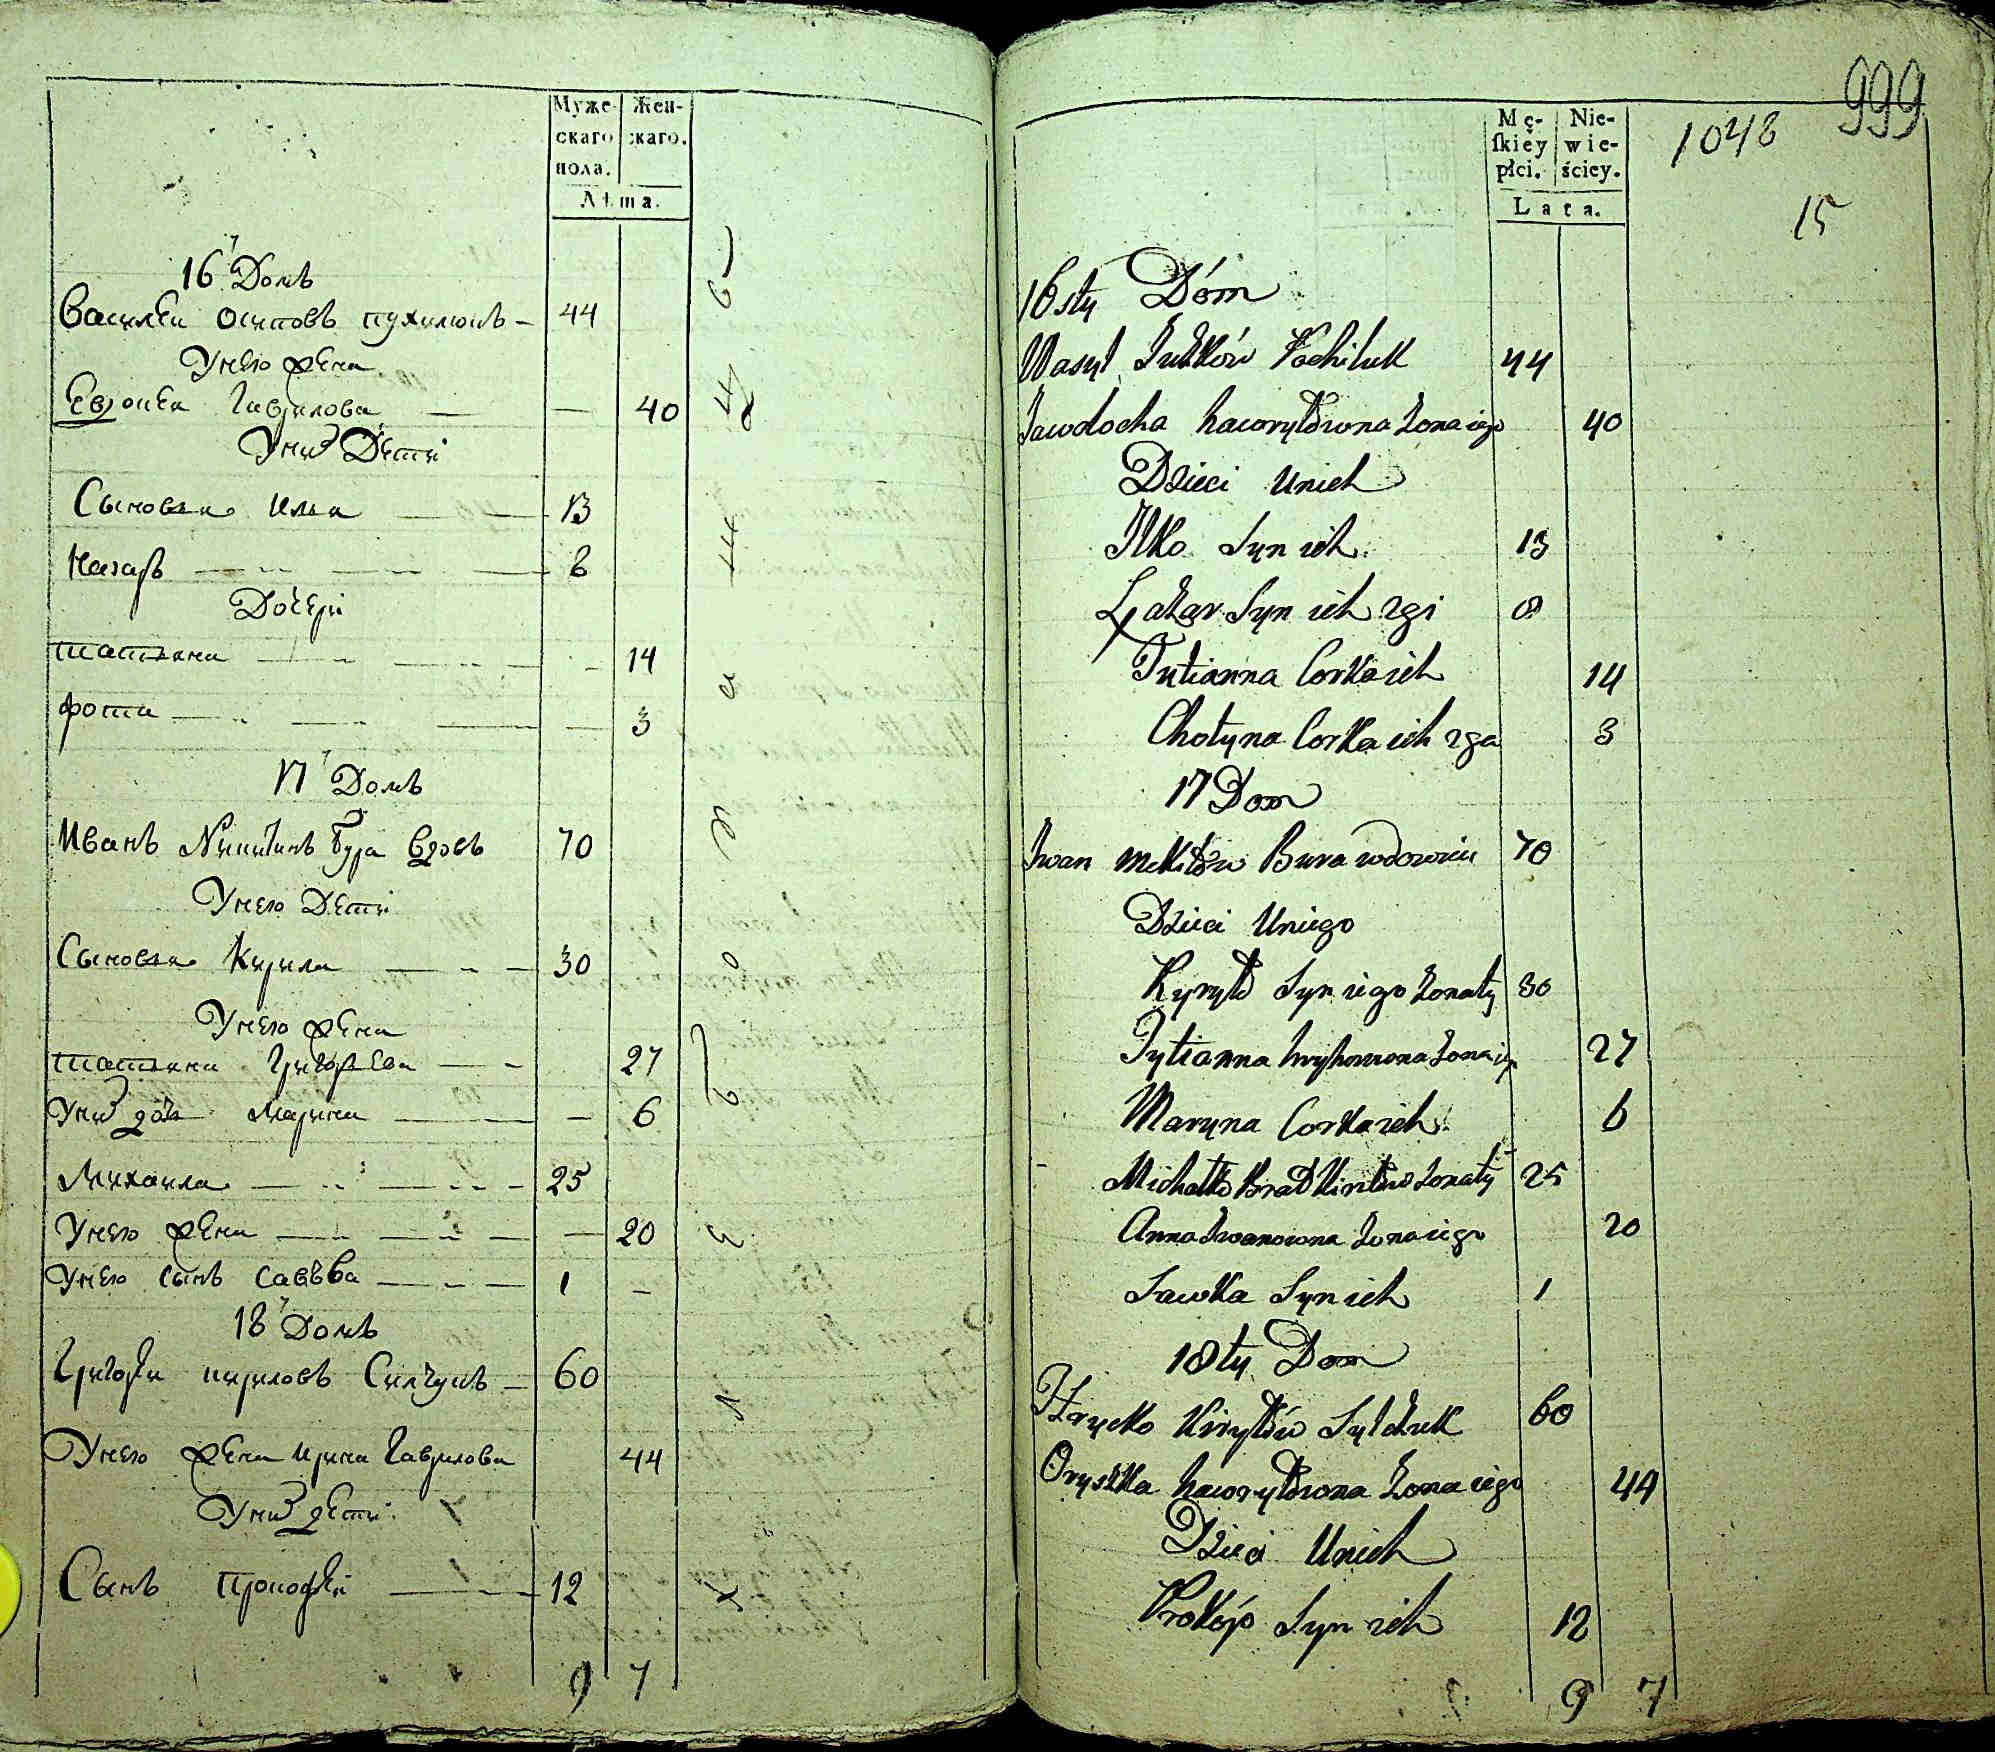 Муже-
скаго
пола.
Жен-
скаго.
Лѣта.
16й Домъ
Василей Осиповъ пухилюкъ 44
Унего жена
Евдокея Гаврилова 40
Униѯ Дети
Сыновья Илья 13
Назаръ 8
Дочери
татьяна 14
фотина 3
17й Домъ
Иванъ Никитинъ Бура вдовъ 70
Унего Дети
Сыновья Кирила 30
Унего жена
татьяна Григорьева 27
Марина 6
Михаила 25
Унего жена 20
Унего сынъ Савъва 1
18й Домъ
Григорей кириловъ Силчукъ 60
Унего жена Ирина Гаврилова 44
дети
Сынъ прокофей 12
9 7
Mę-
ſkiey
płci.
Nie-
wie-
ściey.
Lata.
999
1048
15
16sty Dóm
Wasyl 44
Jawdocha hawryłowna żona iego 40
Dzieci Unich
Ilko Syn ich 13
Syn ich 2gi 8
Tatianna Corka ich 14
Chotyna Corka ich 2ga 3
17 Dom
Iwan Mikitów Bura wdowiec 70
Dzieci Uniego
Kyryło Syn iego żonaty 30
Tytianna hryhorowna żona iego 27
Maryna Corka ich 6
Michałko Brat Kiryłów żonaty 25
Anna Iwanowna żona iego 20
Sawka Syn ich 1
18ty Dom
Hrycko Kiryłów Sylczuk 60
Oryszka hawryłowna żona iego 44
Dzieci Unich
Prokóp Syn ich 12
9 7